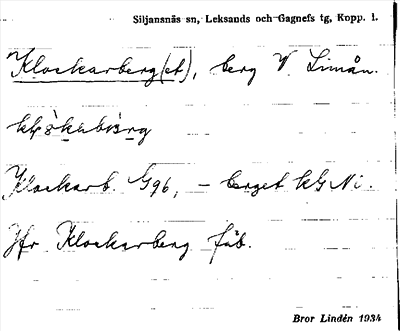 Siljansnäs sn, Leksands och Gagnefs tg, Kopp. l.
Klockarberg(et), berg V Limån.
Klockarb. G96, – berget kG Ni.
Jfr Klockarberg fäb.
Bror Lindén 1934